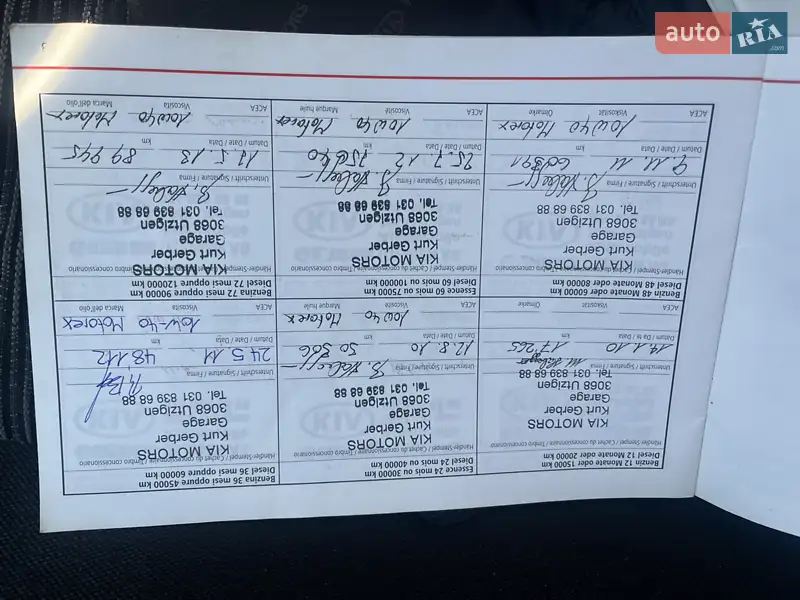 auto RIA .com
Benzin 12 Monate oder 15000 km
Diesel 12 Monate oder 20000 km
Händler-Stempel / Cachet du concessionnaire / Timbro concessionario
KIA MOTORS
Kurt Gerber
Garage
3068 Utzigen
Tel. 031 839 68 88
Unterschrift / Signature / Firma
14.1.10 17'265
Datum / Date / Data km
ACEA Viscosität Ölmarke
Essence 24 mois ou 30000 km
Diesel 24 mois ou 40000 km
Händler-Stempel / Cachet du concessionnaire / Timbro concessionario
KIA MOTORS
Kurt Gerber
Garage
3068 Utzigen
Tel. 031 839 68 88
Unterschrift / Signature / Firma
12.8.10
Datum / Date / Data km
10W40 Motorex
ACEA Viscosité Marque huile
Benzina 36 mesi oppure 45000 km
Diesel 36 mesi oppure 60000 km
Händler-Stempel / Cachet du concessionnaire / Timbro concessionario
KIA MOTORS
Kurt Gerber
Garage
3068 Utzigen
Tel. 031 839 68 88
Unterschrift / Signature / Firma
24.5.11 48'112
Datum / Date / Data km
10W-40 Motorex
ACEA Viscosità Marca dell'olio
Benzin 48 Monate oder 60000 km
Diesel 48 Monate oder 80000 km
Händler-Stempel / Cachet du concessionnaire / Timbro concessionario
KIA MOTORS
Kurt Gerber
Garage
3068 Utzigen
Tel. 031 839 68 88
Unterschrift / Signature / Firma
9.11.11
Datum / Date / Data km
10W40 Motorex
ACEA Viscosität Ölmarke
Essence 60 mois ou 75000 km
Diesel 60 mois ou 100000 km
Händler-Stempel / Cachet du concessionnaire / Timbro concessionario
KIA MOTORS
Kurt Gerber
Garage
3068 Utzigen
Tel. 031 839 68 88
Unterschrift / Signature / Firma
25.7.12
Datum / Date / Data km
10W40 Motorex
ACEA Viscosité Marque huile
Benzina 72 mesi oppure 90000 km
Diesel 72 mesi oppure 120000 km
Händler-Stempel / Cachet du concessionnaire / Timbro concessionario
KIA MOTORS
Kurt Gerber
Garage
3068 Utzigen
Tel. 031 839 68 88
Unterschrift / Signature / Firma
17.5.13 89'945
Datum / Date / Data km
10W40 Motorex
ACEA Viscosità Marca dell'olio